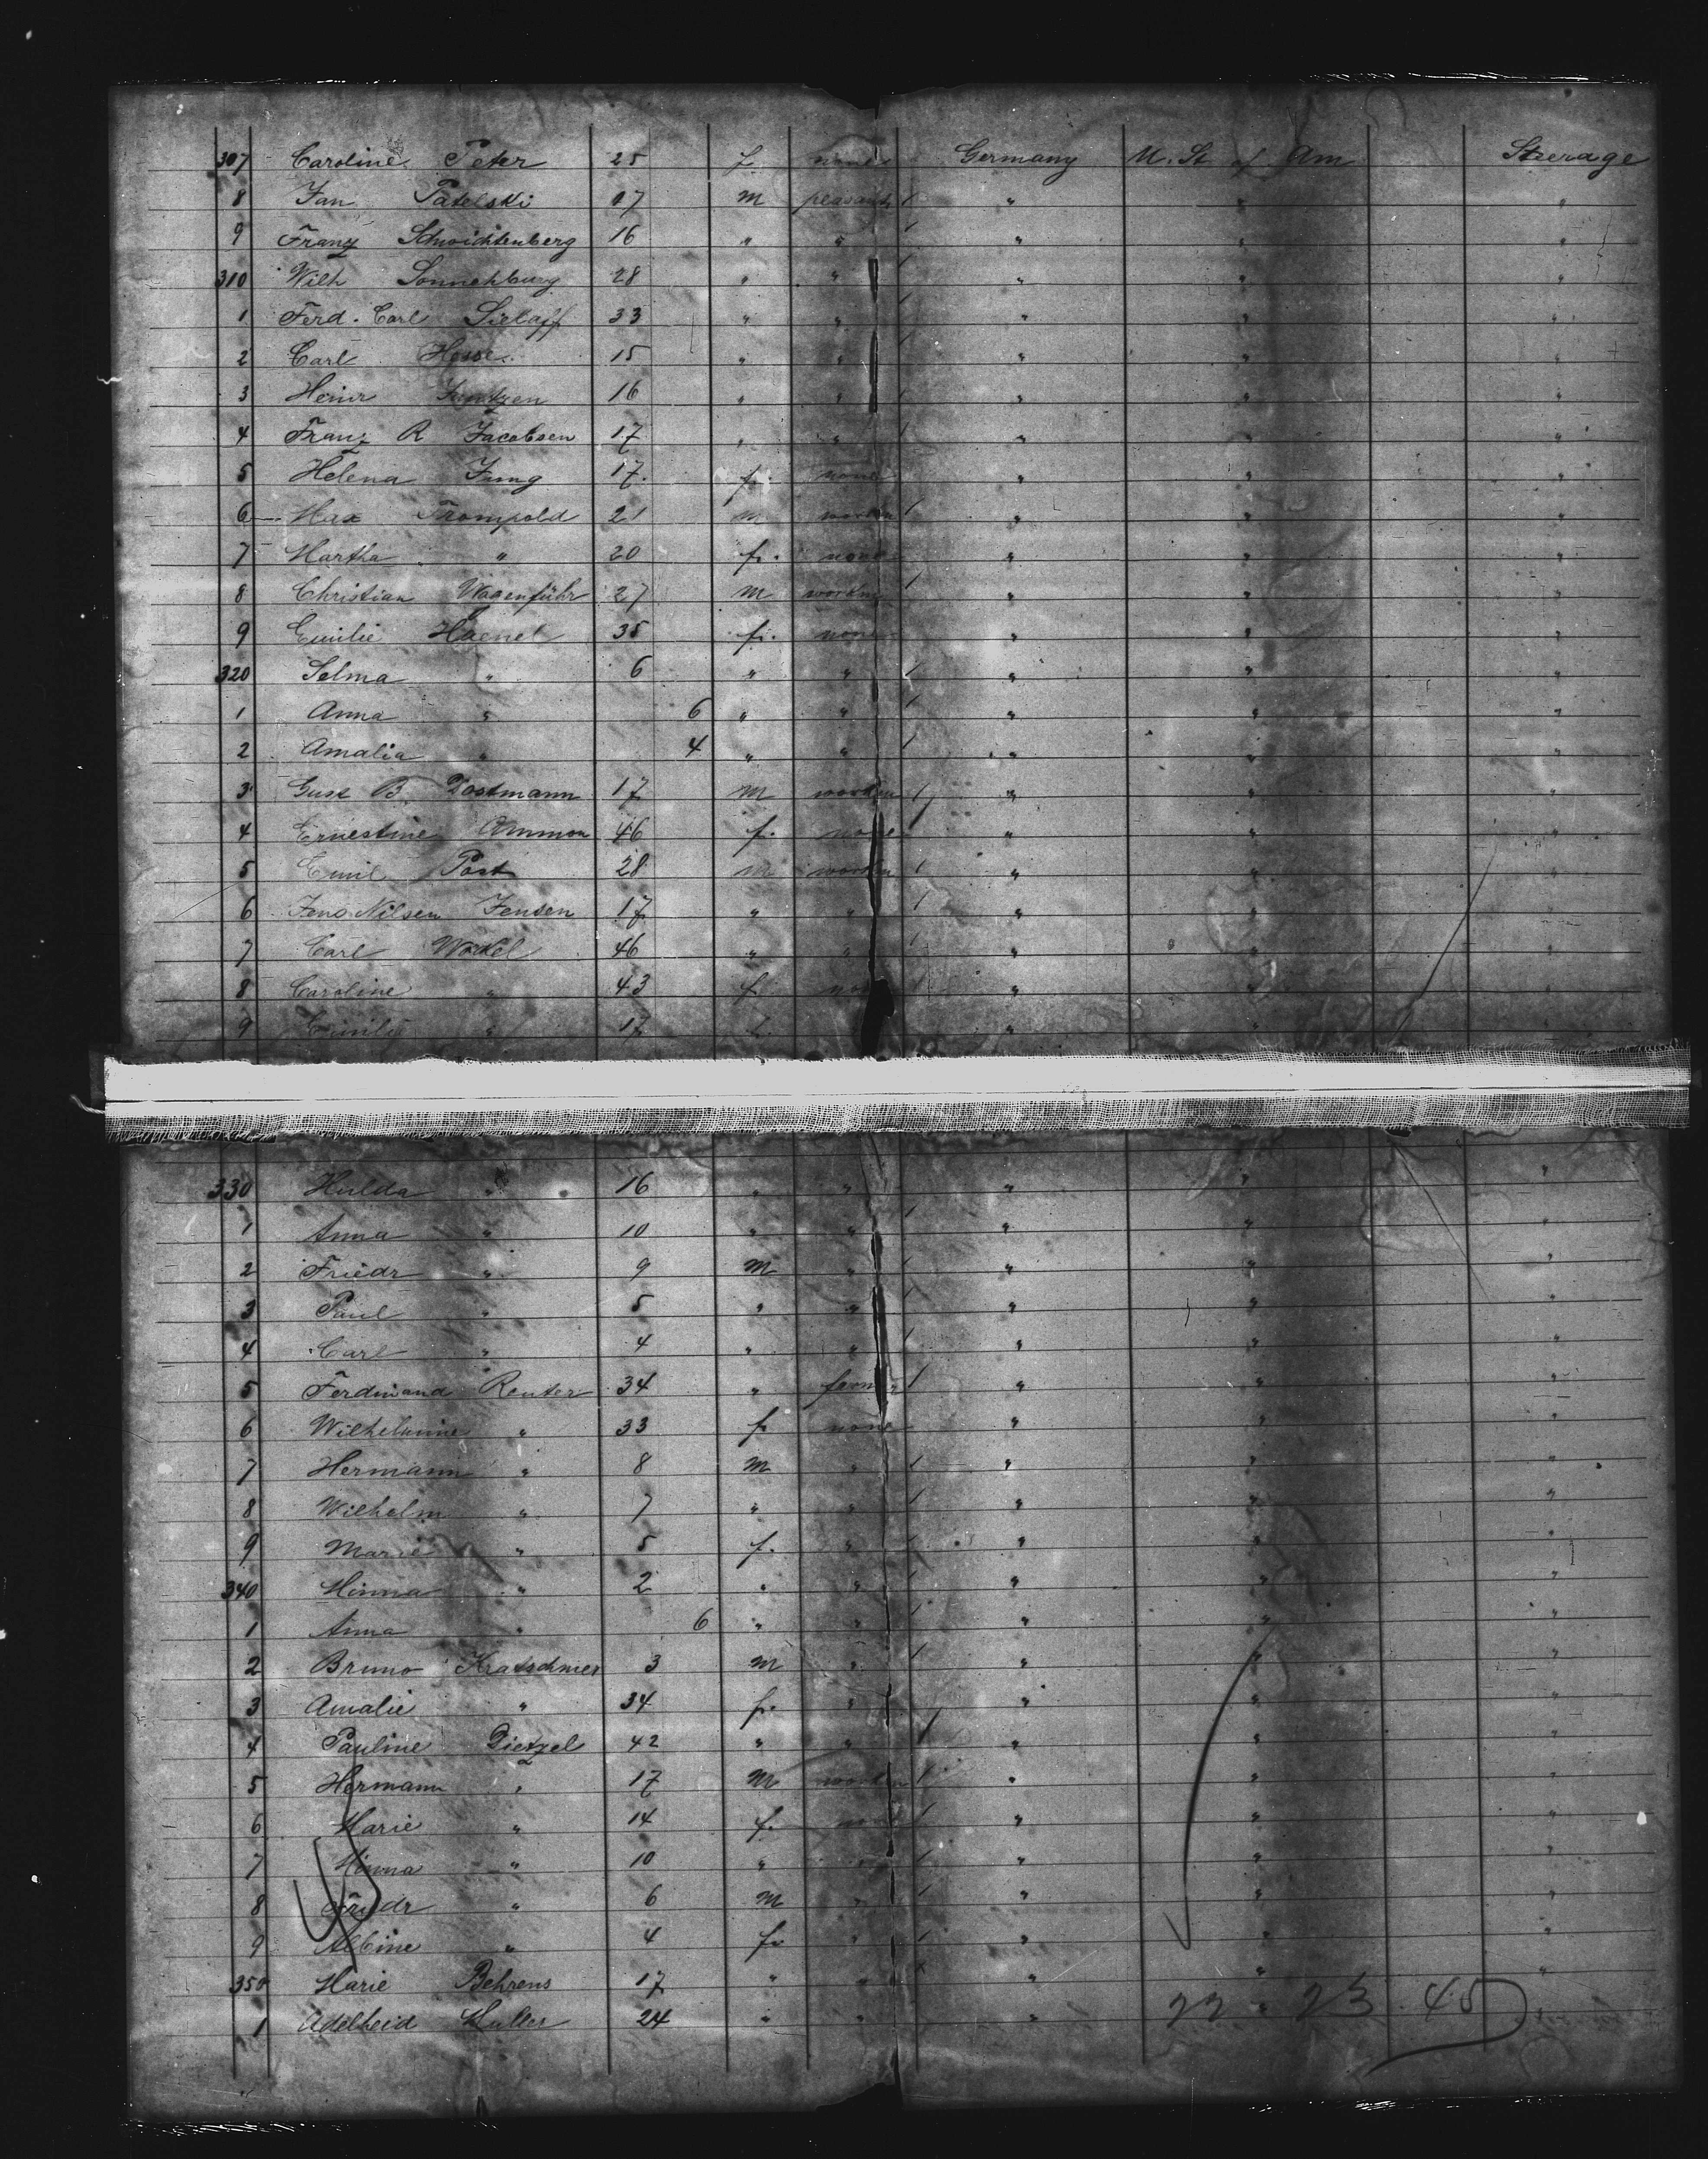 307 Caroline Peter 25 f none Germany U. St of Am Steerage
8 Jan Patelski 17 m peasant " " "
9 Franz Schwichtenberg 16 " " " " "
310 Wilh Sonnenburg 28 " " " " "
1 Ferd. Carl Sielaff 33 " " " " "
2 Carl Hesse 15 " " " " "
3 Heinr Jantzen 16 " " " " "
4 Franz R Jacobsen 17 " " " " "
5 Helena Jung 17. f. none " " "
6 Max Trompold 21 m workm " " "
7 Martha " 20 f. none " " "
8 Christian Wagenführ 27 m workm " " "
9 Emilie Haenel 35 f. none " " "
320 Selma " 6 " " " " "
1 Anna " 6 " " " " "
2 Amalia " 4 " " " " "
3 Gust B. Postmann 17 m workm " " "
4 Ernestine Ammon 46 f. none " " "
5 Emil Post 28 m workm " " "
6 Jens Nilsen Jensen 17 " " " " "
7 Carl Wockel 46 " " " " "
8 Caroline " 43 f. none " " "
9 Emilie " 17 f. " " "
330 Hulda " 16 " " " " "
1 Anna " 10 " " " " "
2 Friedr " 9 m " " " "
3 Paul " 5 " " " " "
4 Carl " 4 " " " " "
5 Ferdinand Reuter 34 " farmer " " "
6 Wilhelmine " 33 f none " " "
7 Hermann " 8 m " " " "
8 Wilhelm " 7 " " " " "
9 Marie " 5 f. " " " "
340 Minna " 2 " " " " "
1 Anna " 6 " " " " "
2 Bruno Kratschmer 3 m " " " "
3 Amalie " 34 f. " " " "
4 Pauline Dietzel 42 " " " " "
5 Hermann " 17 m workm " " "
6 Marie " 14 f. none " " "
7 Minna " 10 " " " " "
8 Friedr " 6 m " " " "
9 Albine " 4 f. " " " "
350 Marie Behrens 17 " " " " "
1 Adelheid Muller 24 " " " " "
22 23 45